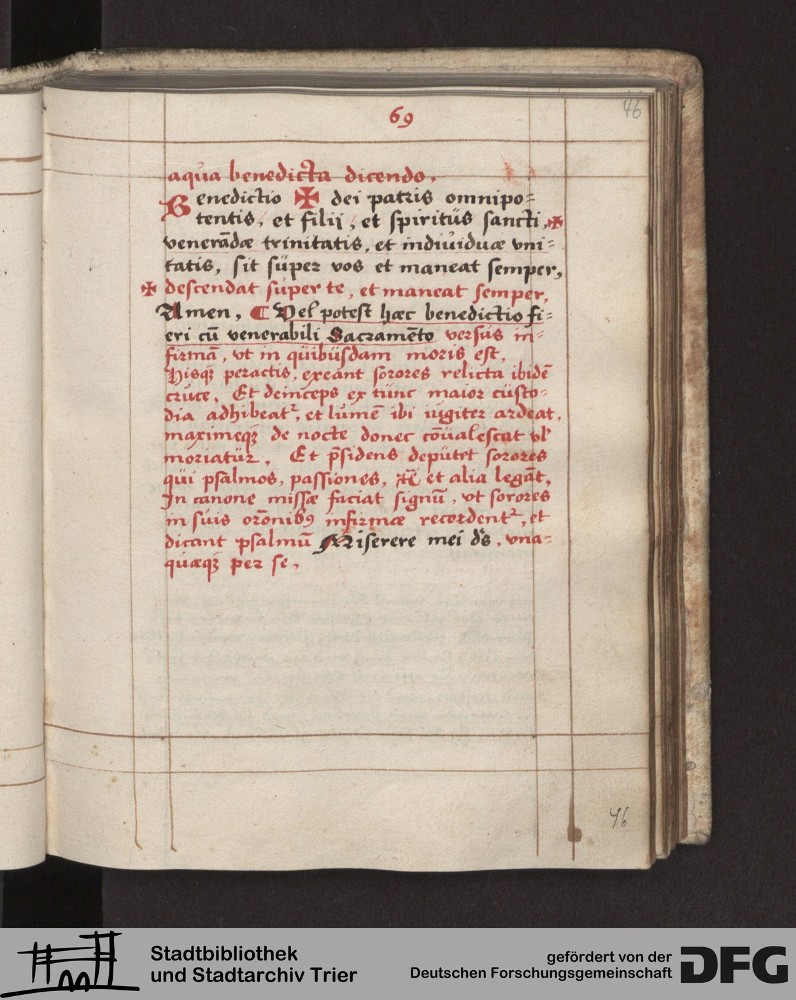 46
69
aqũa benedicta dicendo.
Benedictio ✠ dei patris omnipo=
tentis, et filij, et spiritũs sancti, ✠
venerãdæ trinitatis, et indiuiduæ vni=
tatis, sit sũper vos et maneat semper,
✠ descendat sũper te, et maneat semper,
Amen, ¶ Vel potest hæc benedictio fi=
eri cũ venerabili Sacramẽto versũs in=
firmã, vt in qũibũsdam moris est,
Hisqȝ peractis, exeant sorores relicta ibidẽ
crũce, Et deinceps ex tũnc maior cũsto=
dia adhibeatᷣ, et lũmẽ ibi iũgiter ardeat,
maximeqȝ de nocte donec cõũalescat vł
moriatũr, Et p̃sidens depũtet sorores
qũi psalmos, passiones, et alia legãt,
In canone missæ faciat signũ, vt sorores
in sũis orõnibꝰ infirmæ recordentᷣ, et
dicant psalmũ Miserere mei ds̃, vna=
quæqȝ per se,
46
Stadtbibliothek
und Stadtarchiv Trier
gefördert von der
Deutschen Forschungsgemeinschaft
DFG